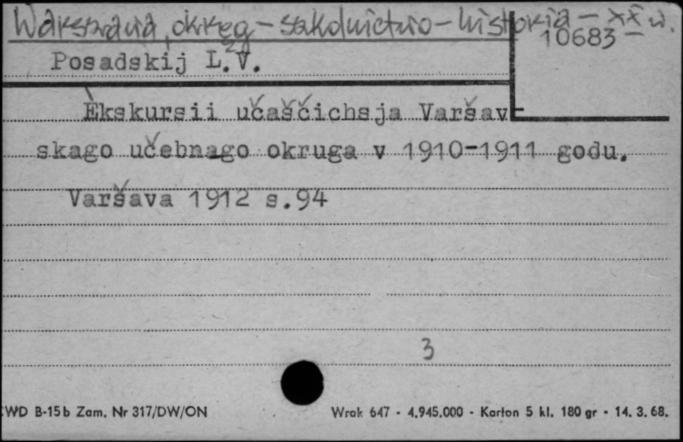 Warszawa, okręg - szkolnictwo - historia - XX w.
10683
Posadskij L.V.
Èkskursii učaščichsja Varšav-
skago učebnago okruga v 1910-1911 godu.
Varšava 1912 s.94
3
WD B-15b Zam. Nr 317/DW/ON
Wrak 647 - 4.945.000 - Karton 5 kl. 180 gr - 14. 3. 68.